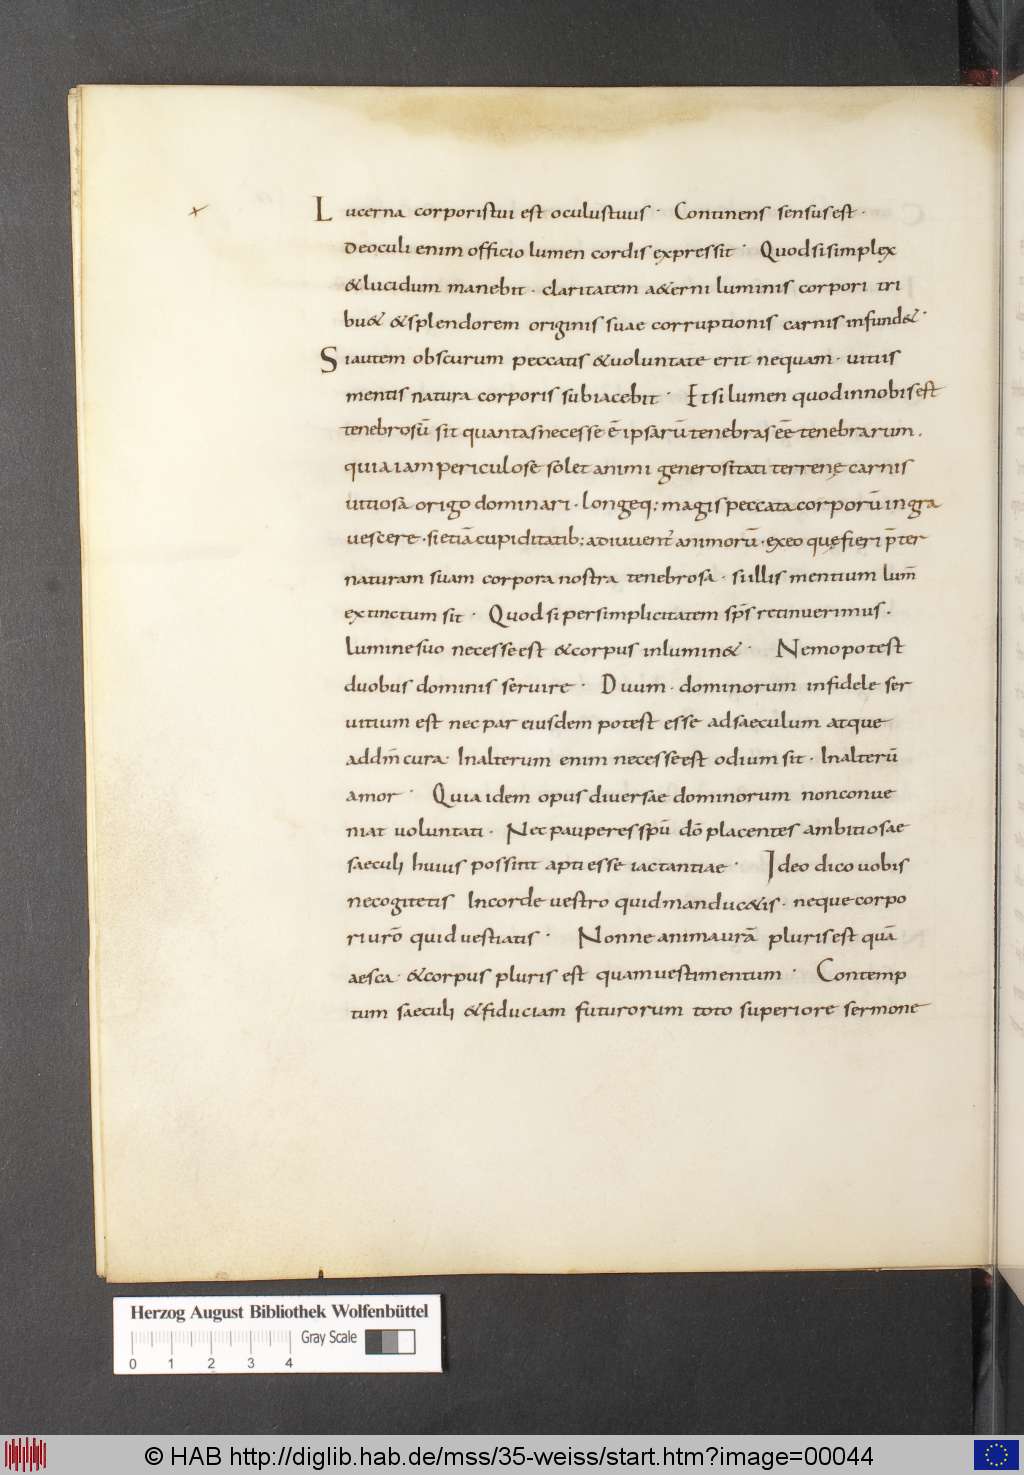 Lucerna corporistui est oculustuus · Continens sensusest ·
deoculi enim officio lumen cordis expressit · Quodsisimplex
&lucidum manebit · claritatem a&erni luminis corpori tri
bu& &splendorem originis suae corruptionis carnis infund& ·
Siautem obscurum peccatis &uoluntate erit nequam · uitiis
mentis natura corporis subiacebit · Etsi lumen quodinnobisest
tenebrosū sit quantasnecesse ē ipsarū tenebras eē tenebrarum .
quia iam periculose solet animi generositati terrenę carnis
uitiosa origo dominari · longeq; magis peccata corporū ingra
uescere · si etiā cupiditatib; adiuuent᷑ animorū · exeo quęfieri p̄ter
naturam suam corpora nostra tenebrosa · siillis mentium lum̄
extinctum sit · Quod si persimplicitatem sp̄s retinuerimus .
luminesuo necesseest &corpus inlumin& · Nemopotest
duobus dominis seruire · Duum · dominorum infidele ser
uitium est nec par eiusdem potest esse adsaeculum atque
addm̄ cura · Inalterum enim necesseest odium sit · Inalterū
amor · Quia idem opus diuersae dominorum nonconue
niat uoluntati · Nec pauperes spū dō placentes ambitiosae
saeculi huius possint apti esse iactantiae · Ideo dico uobis
necogitetis Incorde uestro quid manduc&is · neque corpo
riurō quid uestiatis · Nonne animaurā plurisest quā
aesca · &corpus pluris est quamuestimentum · Contemp
tum saeculi &fiduciam futurorum toto superiore sermone
Herzog August Bibliothek Wolfenbüttel
Gray Scale
0 1 2 3 4
© HAB http://diglib.hab.de/mss/35-weiss/start.htm?image=00044